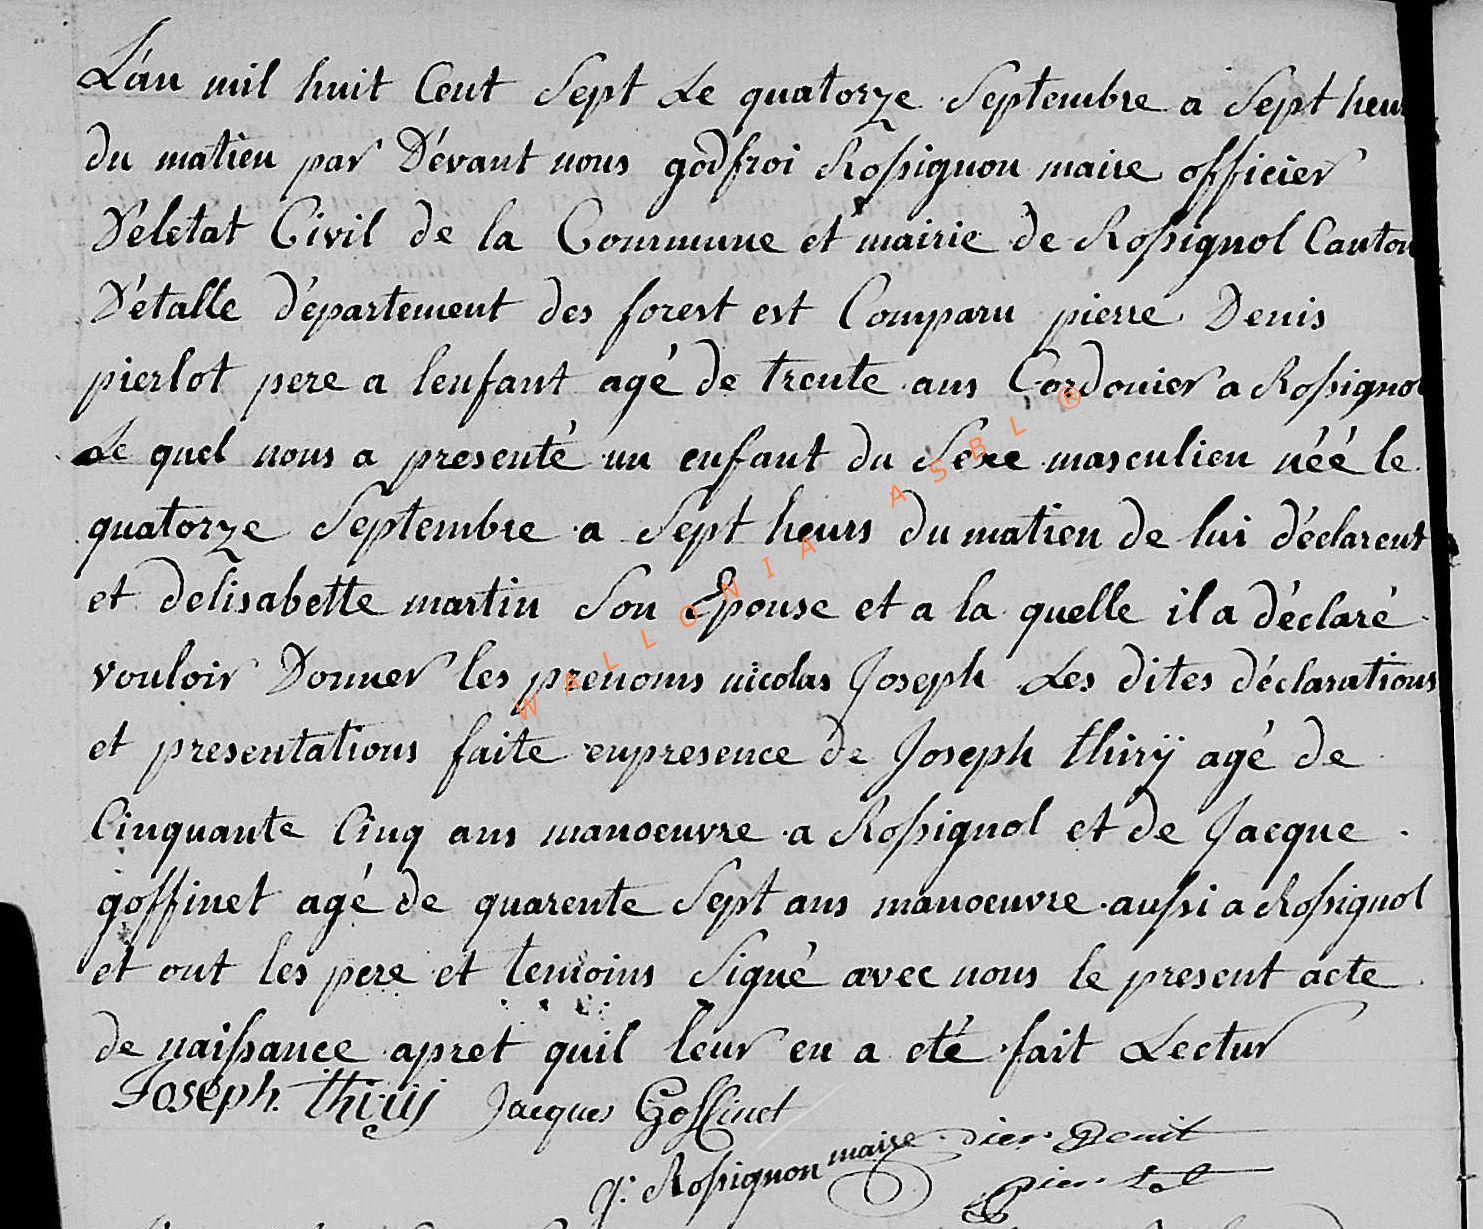 L'an mil huit Cent Sept Le quatorze Septembre a Sept heu
du matien par D'évant nous godfroi Rossignon maire officier
D'eletat Civil de la Commune et mairie de Rossignol Canton
D'étalle d'épartement des forest est Comparu pierre Denis
pierlot pere a lenfant agé de trente ans Cordonier a Rossignol
Le quel nous a presenté un enfant du Sexe masculien néé le
quatorze Septembre a Sept heurs du matien de lui déclarent
et delisabette martin Son Epouse et a la quelle il a déclaré
vouloir Donner les prenoms nicolas Joseph Les dites déclarations
et presentations faite enpresence de Joseph thirÿ agé de
Cinquante Cinq ans manoeuvre a Rossignol et de Jacque
goffinet agé de quarente Sept ans manoeuvre aussi a Rossignol
et ont les pere et temoins Signé avec nous le present acte
de naissance apret quil leur en a eté fait Lectur
Joseph thirij Jacques Goffinet
g: Rossignon maire pier Denit
pierlot
WALLONIA ASBL ®